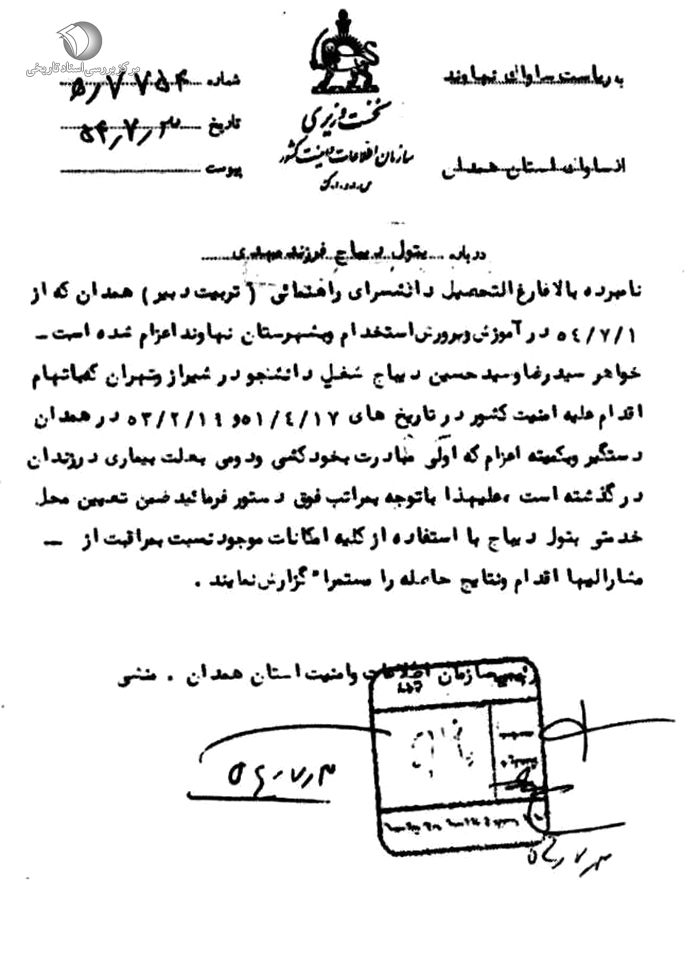 مرکز بررسی اسناد تاریخی
به ریاست ساواک نهاوند
از ساواک استان همدان
نخست وزیری
سازمان اطلاعات و امنیت کشور
س.ا.و.ا.ک
شماره ۵/۷۷۵۴
تاریخ ۵۴/۷/۳
پیوست
درباره بتول دیباج فرزند مهدی
نامبرده بالا فارغ التحصیل دانشسرای راهنمائی (تربیت دبیر) همدان که از
۵٤/۷/۱ در آموزش و پرورش استخدام و بشهرستان نهاوند اعزام شده است ــ
خواهر سیدرضا و سیدحسین دیباج شغل دانشجو در شیراز و تهران که باتهام
اقدام علیه امنیت کشور در تاریخ های ۵۱/٤/۱۷ و ۵۳/۲/۱۹ در همدان
دستگیر و بکمیته اعزام که اولی مبادرت بخودکشی و دومی بعلت بیماری در زندان
درگذشته است ، علیهذا با توجه بمراتب فوق دستور فرمائید ضمن تعیین محل
خدمتی بتول دیباج با استفاده از کلیه امکانات موجود نسبت بمراقبت از ــ
مشارالیها اقدام و نتایج حاصله را مستمرا" گزارش نمایند .
رئیس سازمان اطلاعات و امنیت استان همدان . منشی
۵۴/۷/۳
۵۴/۷/۳